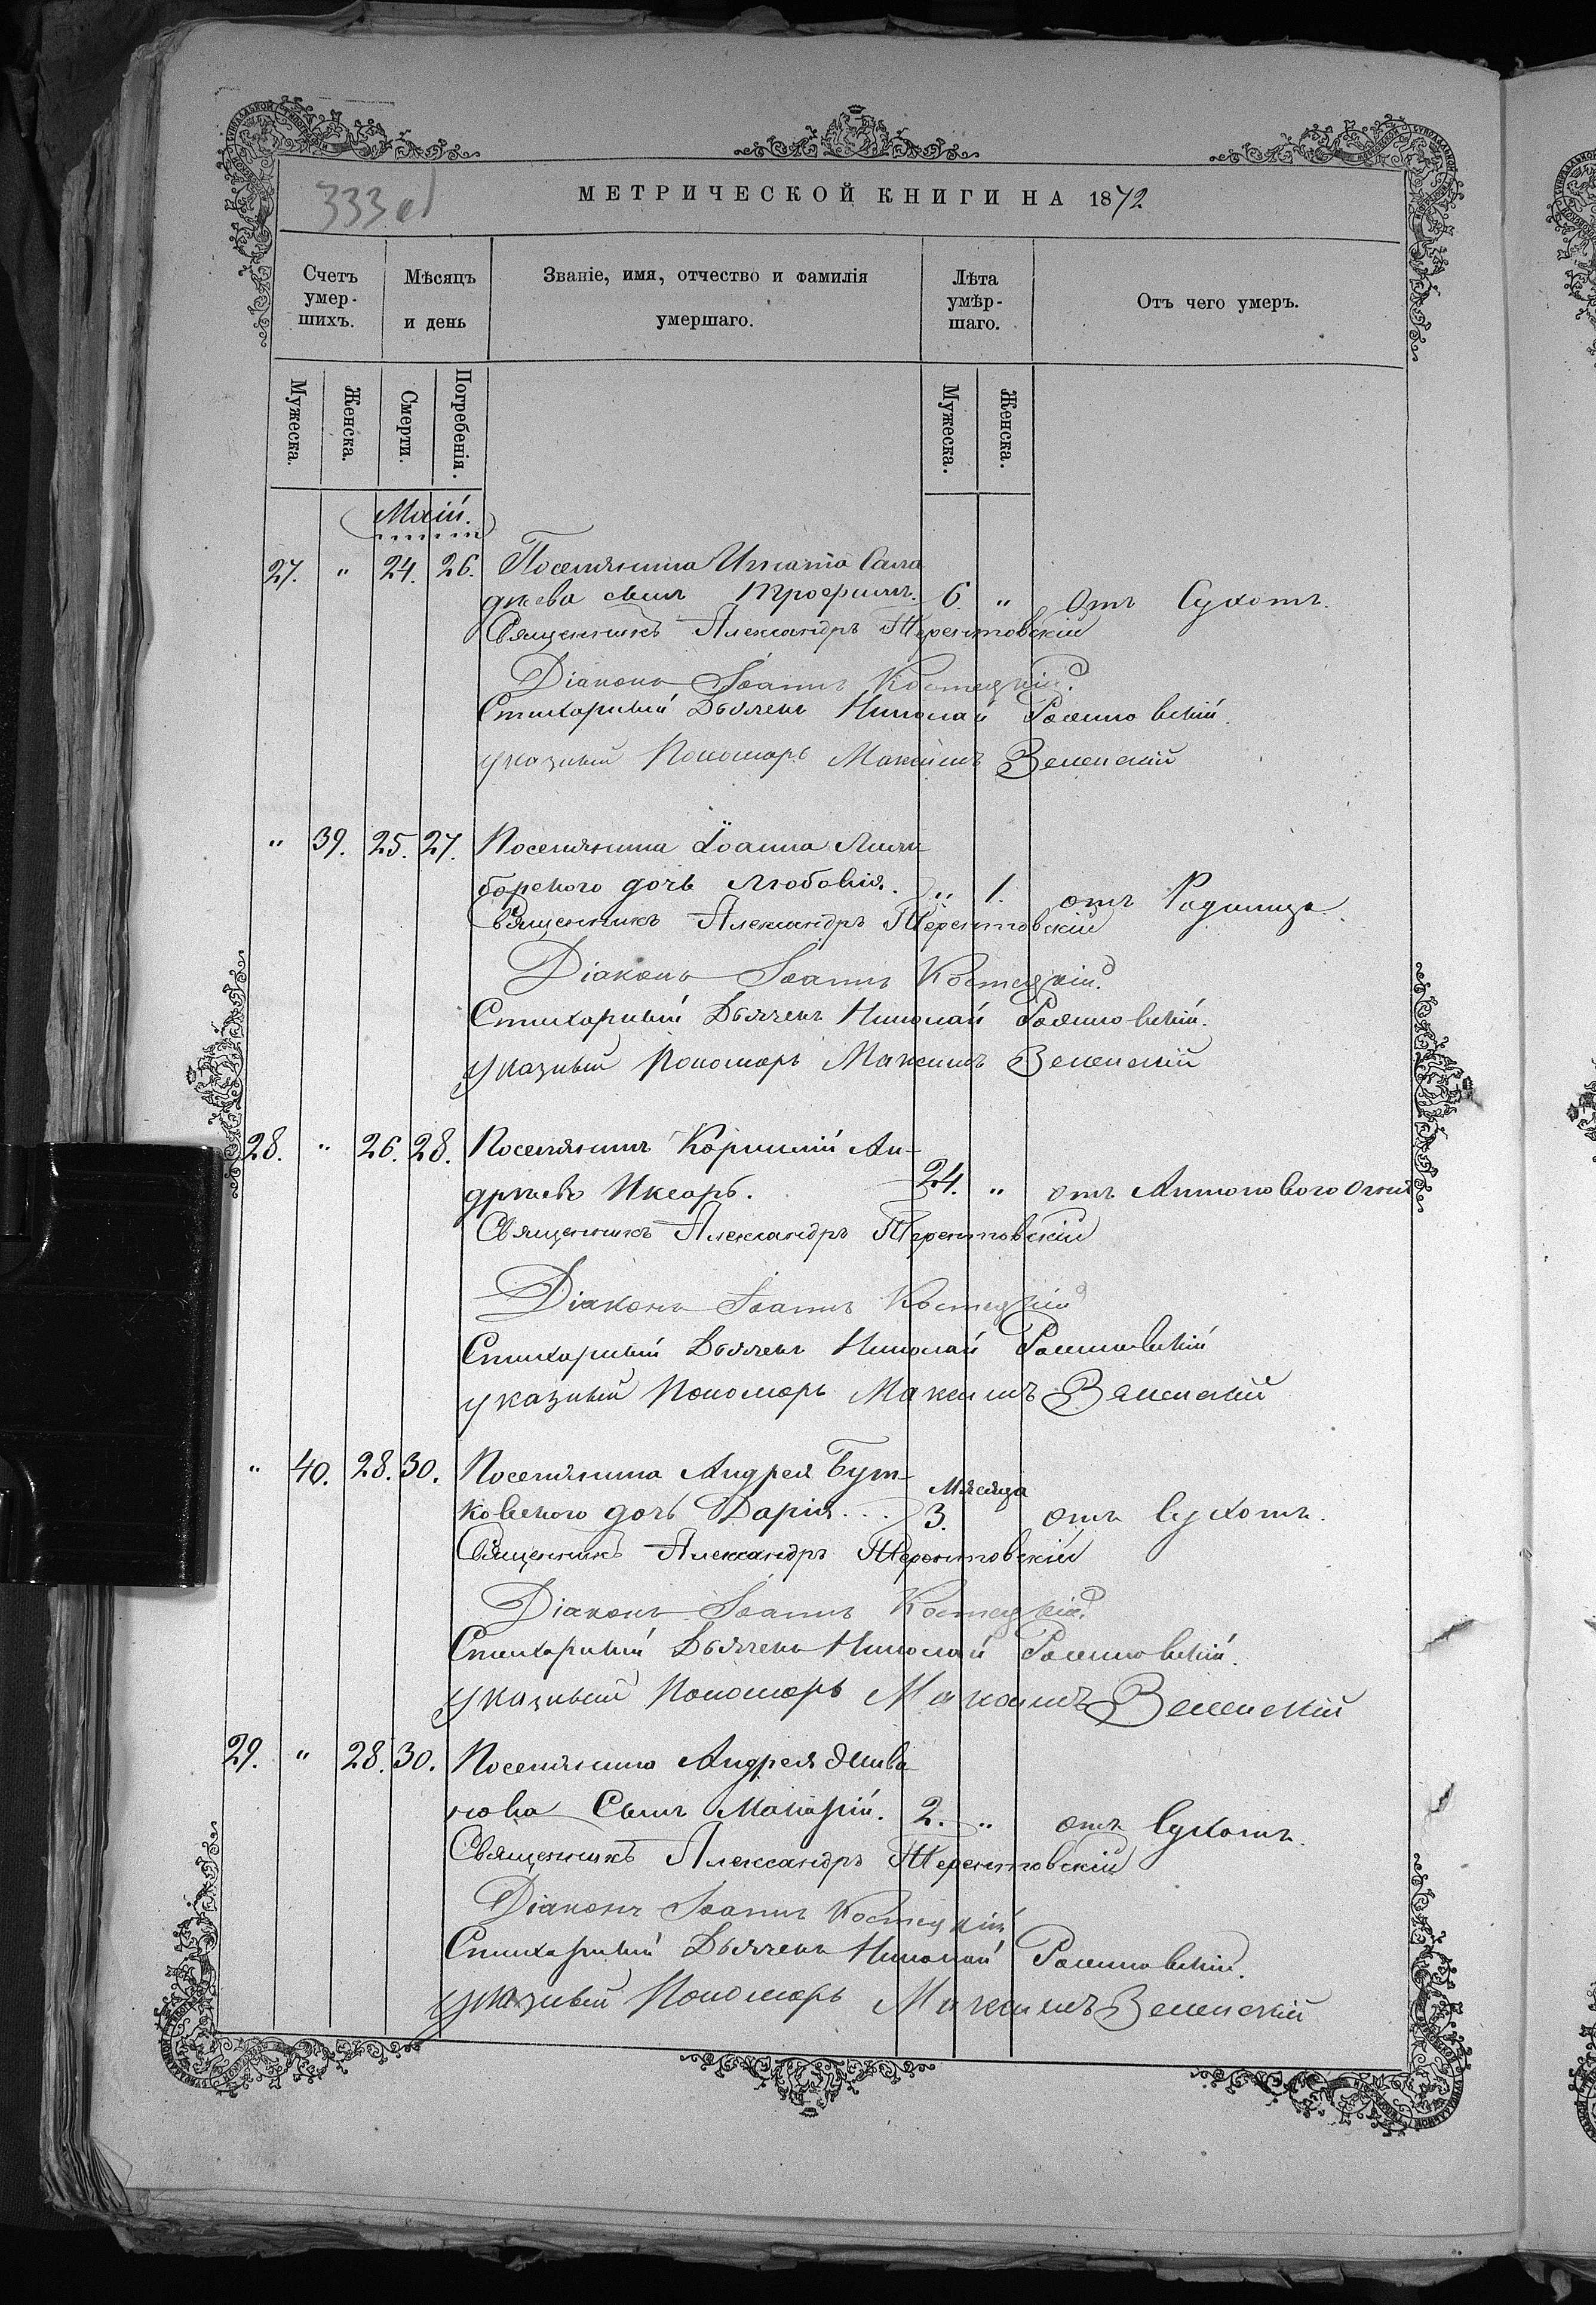 333 об
МЕТРИЧЕСКОЙ КНИГИ НА 1872
Счетъ умер-шихъ.
Мѣсяцъ и день
Званіе, имя, отчество и фамилія умершаго.
Лѣта умѣр-шаго.
Отъ чего умеръ.
Мужеска. Женска. Смерти. Погребенія. Мужеска. Женска.
Маій.
27. " 24. 26. Поселянина Игната
сынъ Трофимъ. 6. " Отъ Сухотъ.
Священникъ Александръ Терентовскій
Діаконъ Іоаннъ Костецкій
Стихарный Дьячекъ Николай
указный Пономарь Максимъ Зеленскій
" 39. 25. 27. Поселянина Іоанна
дочь Любовія. " 1. отъ Родимца.
Священникъ Александръ Терентовскій
Діаконъ Іоаннъ Костецкій
Стихарный Дьячекъ Николай
указный Пономарь Максимъ Зеленскій
28. " 26. 28. Поселянинъ Корнилій Ан-
дрѣевъ Иксарь. 24. " отъ Антонового огня
Священникъ Александръ Терентовскій
Діаконъ Іоаннъ Костецкій
Стихарный Дьячекъ Николай
указный Пономарь Максимъ Зеленскій
" 40. 28. 30. Поселянина Андрея Бут-
ковского дочь Дарія... Мѣсяца 3. отъ Сухотъ.
Священникъ Александръ Терентовскій
Діаконъ Іоаннъ Костецкій
Стихарный Дьячекъ Николай
указный Пономарь Максимъ Зеленскій
29. " 28. 30. Поселянина Андрея
Сынъ Макарій. 2. " отъ Сухотъ.
Священникъ Александръ Терентовскій
Діаконъ Іоаннъ Костецкій
Стихарный Дьячекъ Николай
указный Пономарь Максимъ Зеленскій